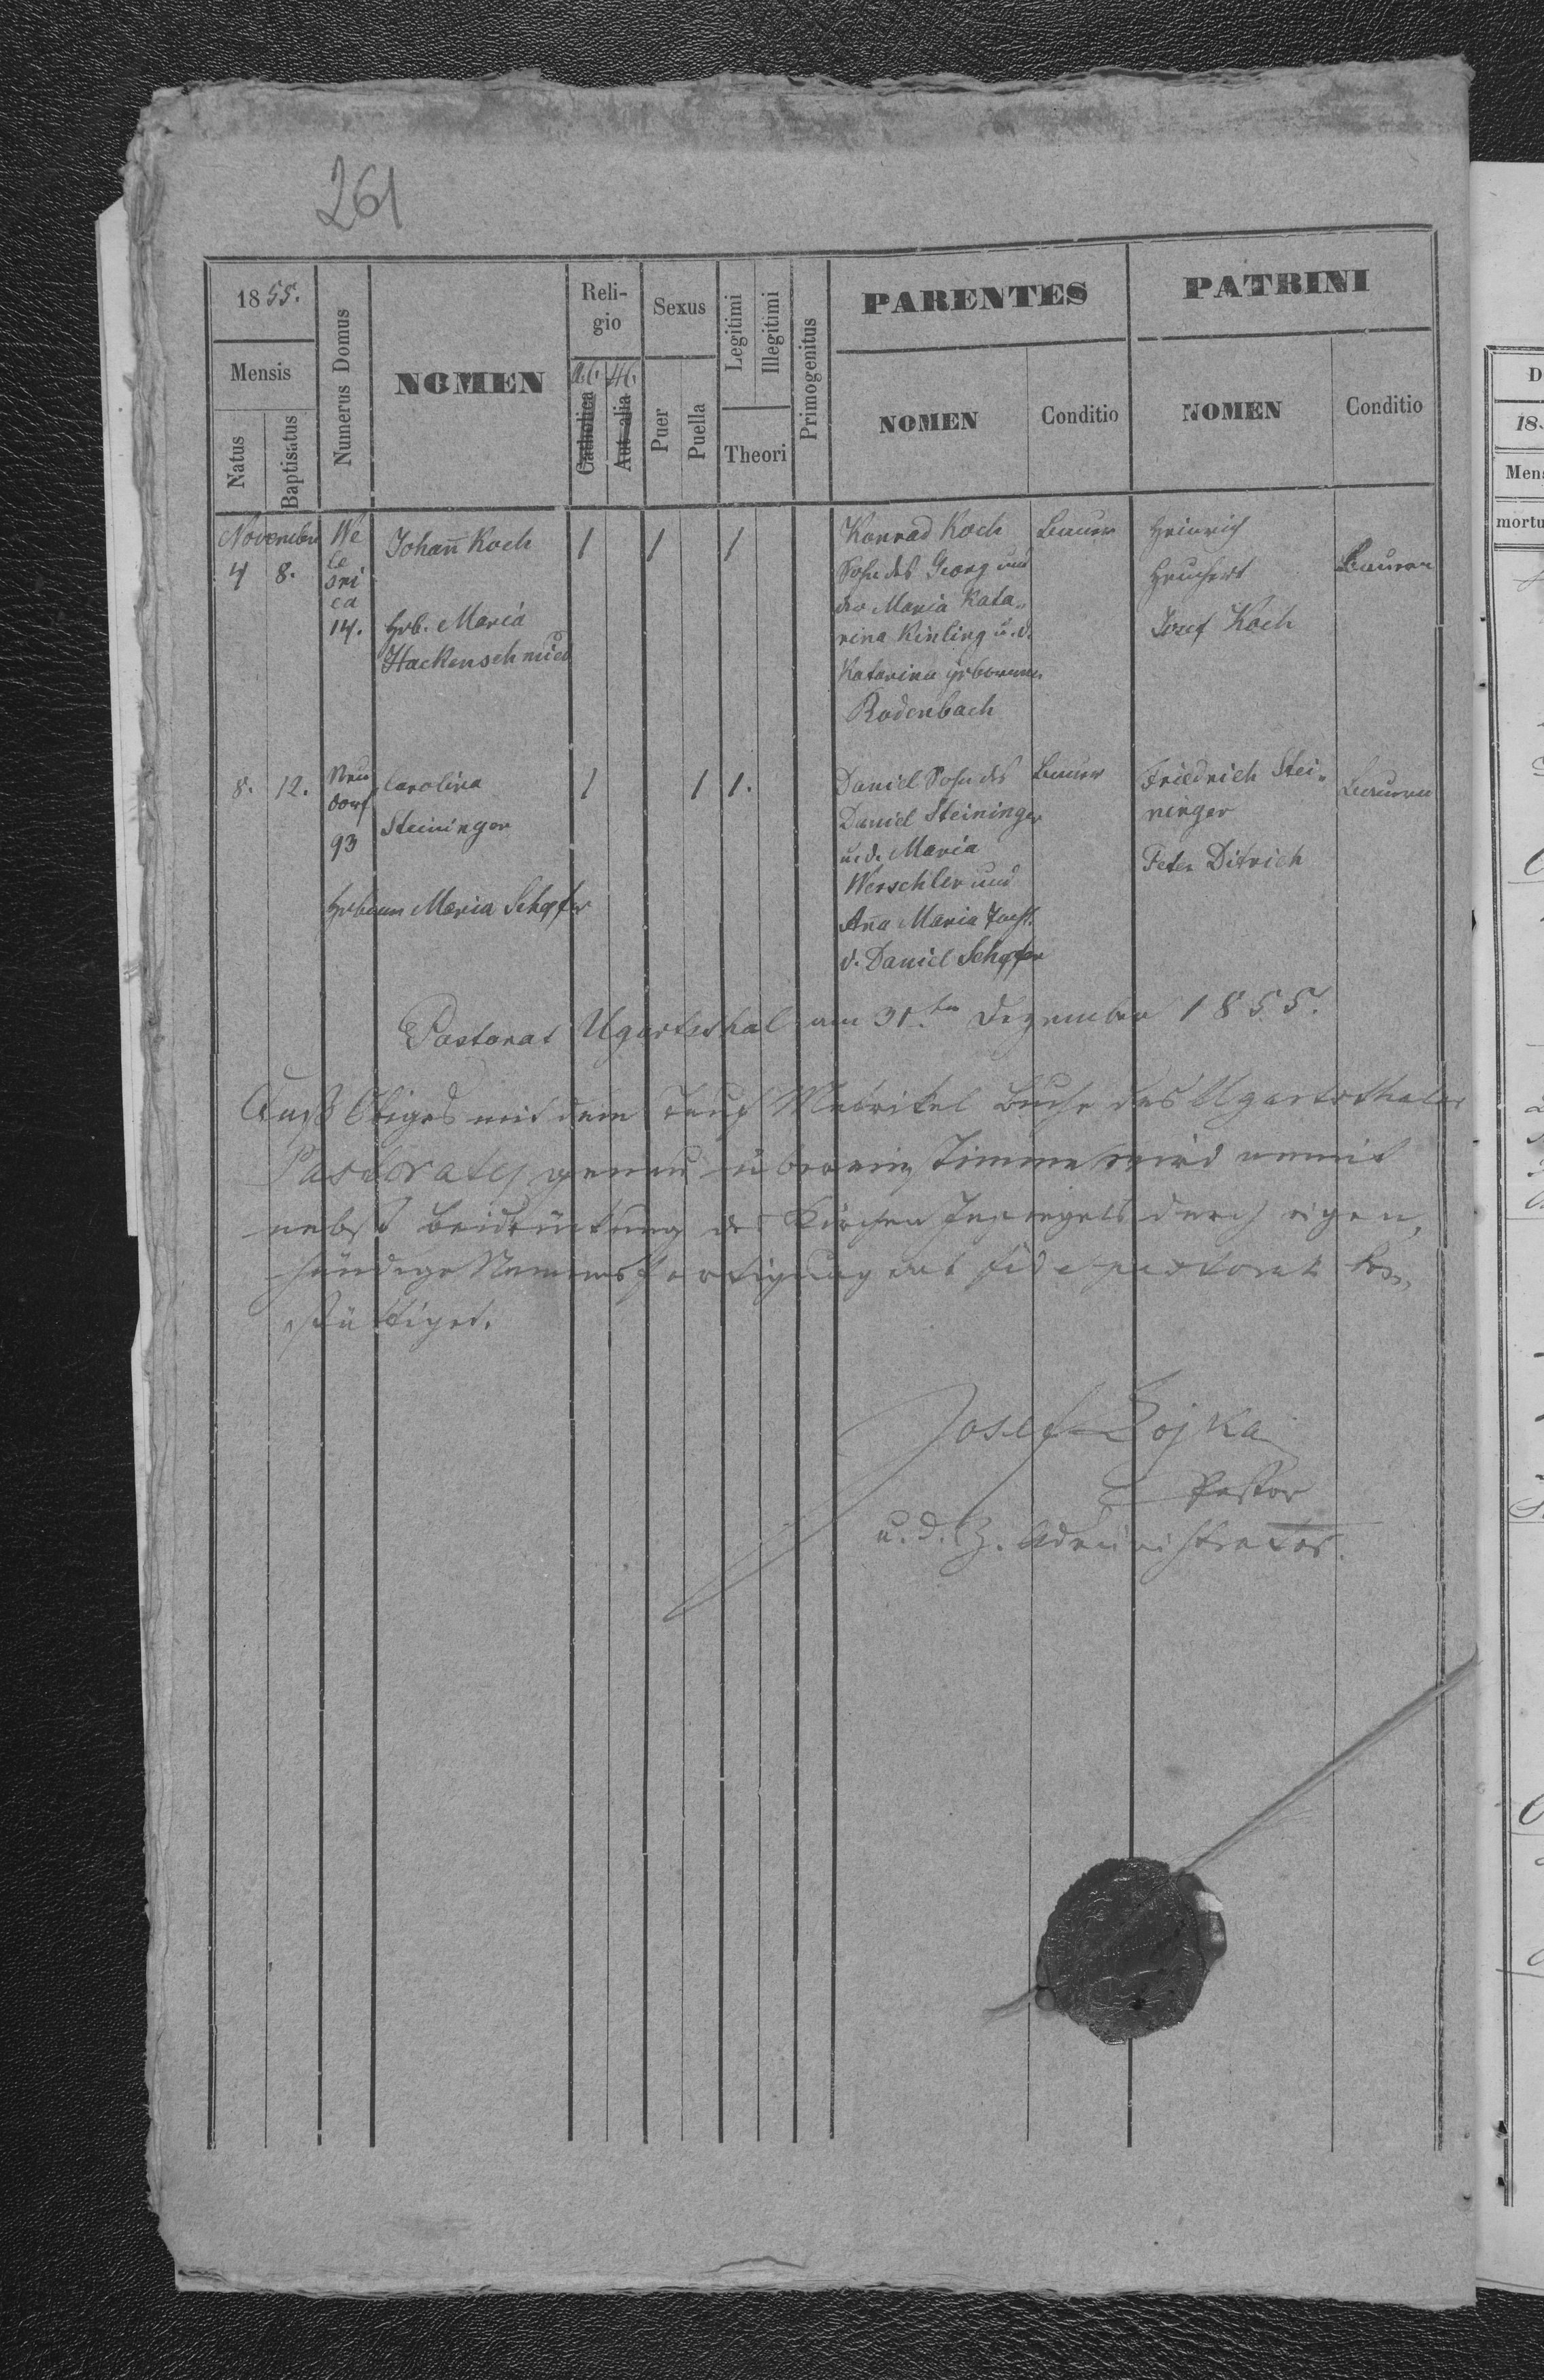 261
1855.
Mensis
Natus
Baptisatus
Numerus Domus
NOMEN
Reli-
gio
Catholica
Aut alia
Sexus
Puer
Puella
Legitimi
Illegitimi
Theori
Primogenitus
PARENTES
NOMEN
Conditio
PATRINI
NOMEN
Conditio
November
4 8.
We
le
sni
ca
14.
Johann Koch
Heb. Maria
Hackenschmied
1 1 1
Konrad Koch
Sohn des Georg und
der Maria Kata„
rina Kinling u. d.
Katarina geborenen
Rodenbach
Bauer
Heinrich
Heuchert
Josef Koch
Bauern
8. 12.
Neu
dorf
93
Carolina
Steininger
Hebamm Maria Schefer
1 1 1.
Daniel Sohn des
Daniel Steininger
u. d. Maria
Werschler und
Anna Maria Tocht.
d. Daniel Schefer
Bauer
Friedrich Stei„
ninger
Peter Ditrich
Bauern
Pastorat Ugartsthal am 31.ten Dezember 1855.
Daß Obiges mit dem Tauf Matrikel Buche des Ugartsthaler
Pastorates genau übereinstimme wird anmit
nebst Beidrückung des Kirchen Insiegels durch eigen„
händige Namensfertigung et fide pastorali be„
stättiget.
Josef Lojka
Pastor
u. d. Z. Administrator.
D
18
Mens
mortu